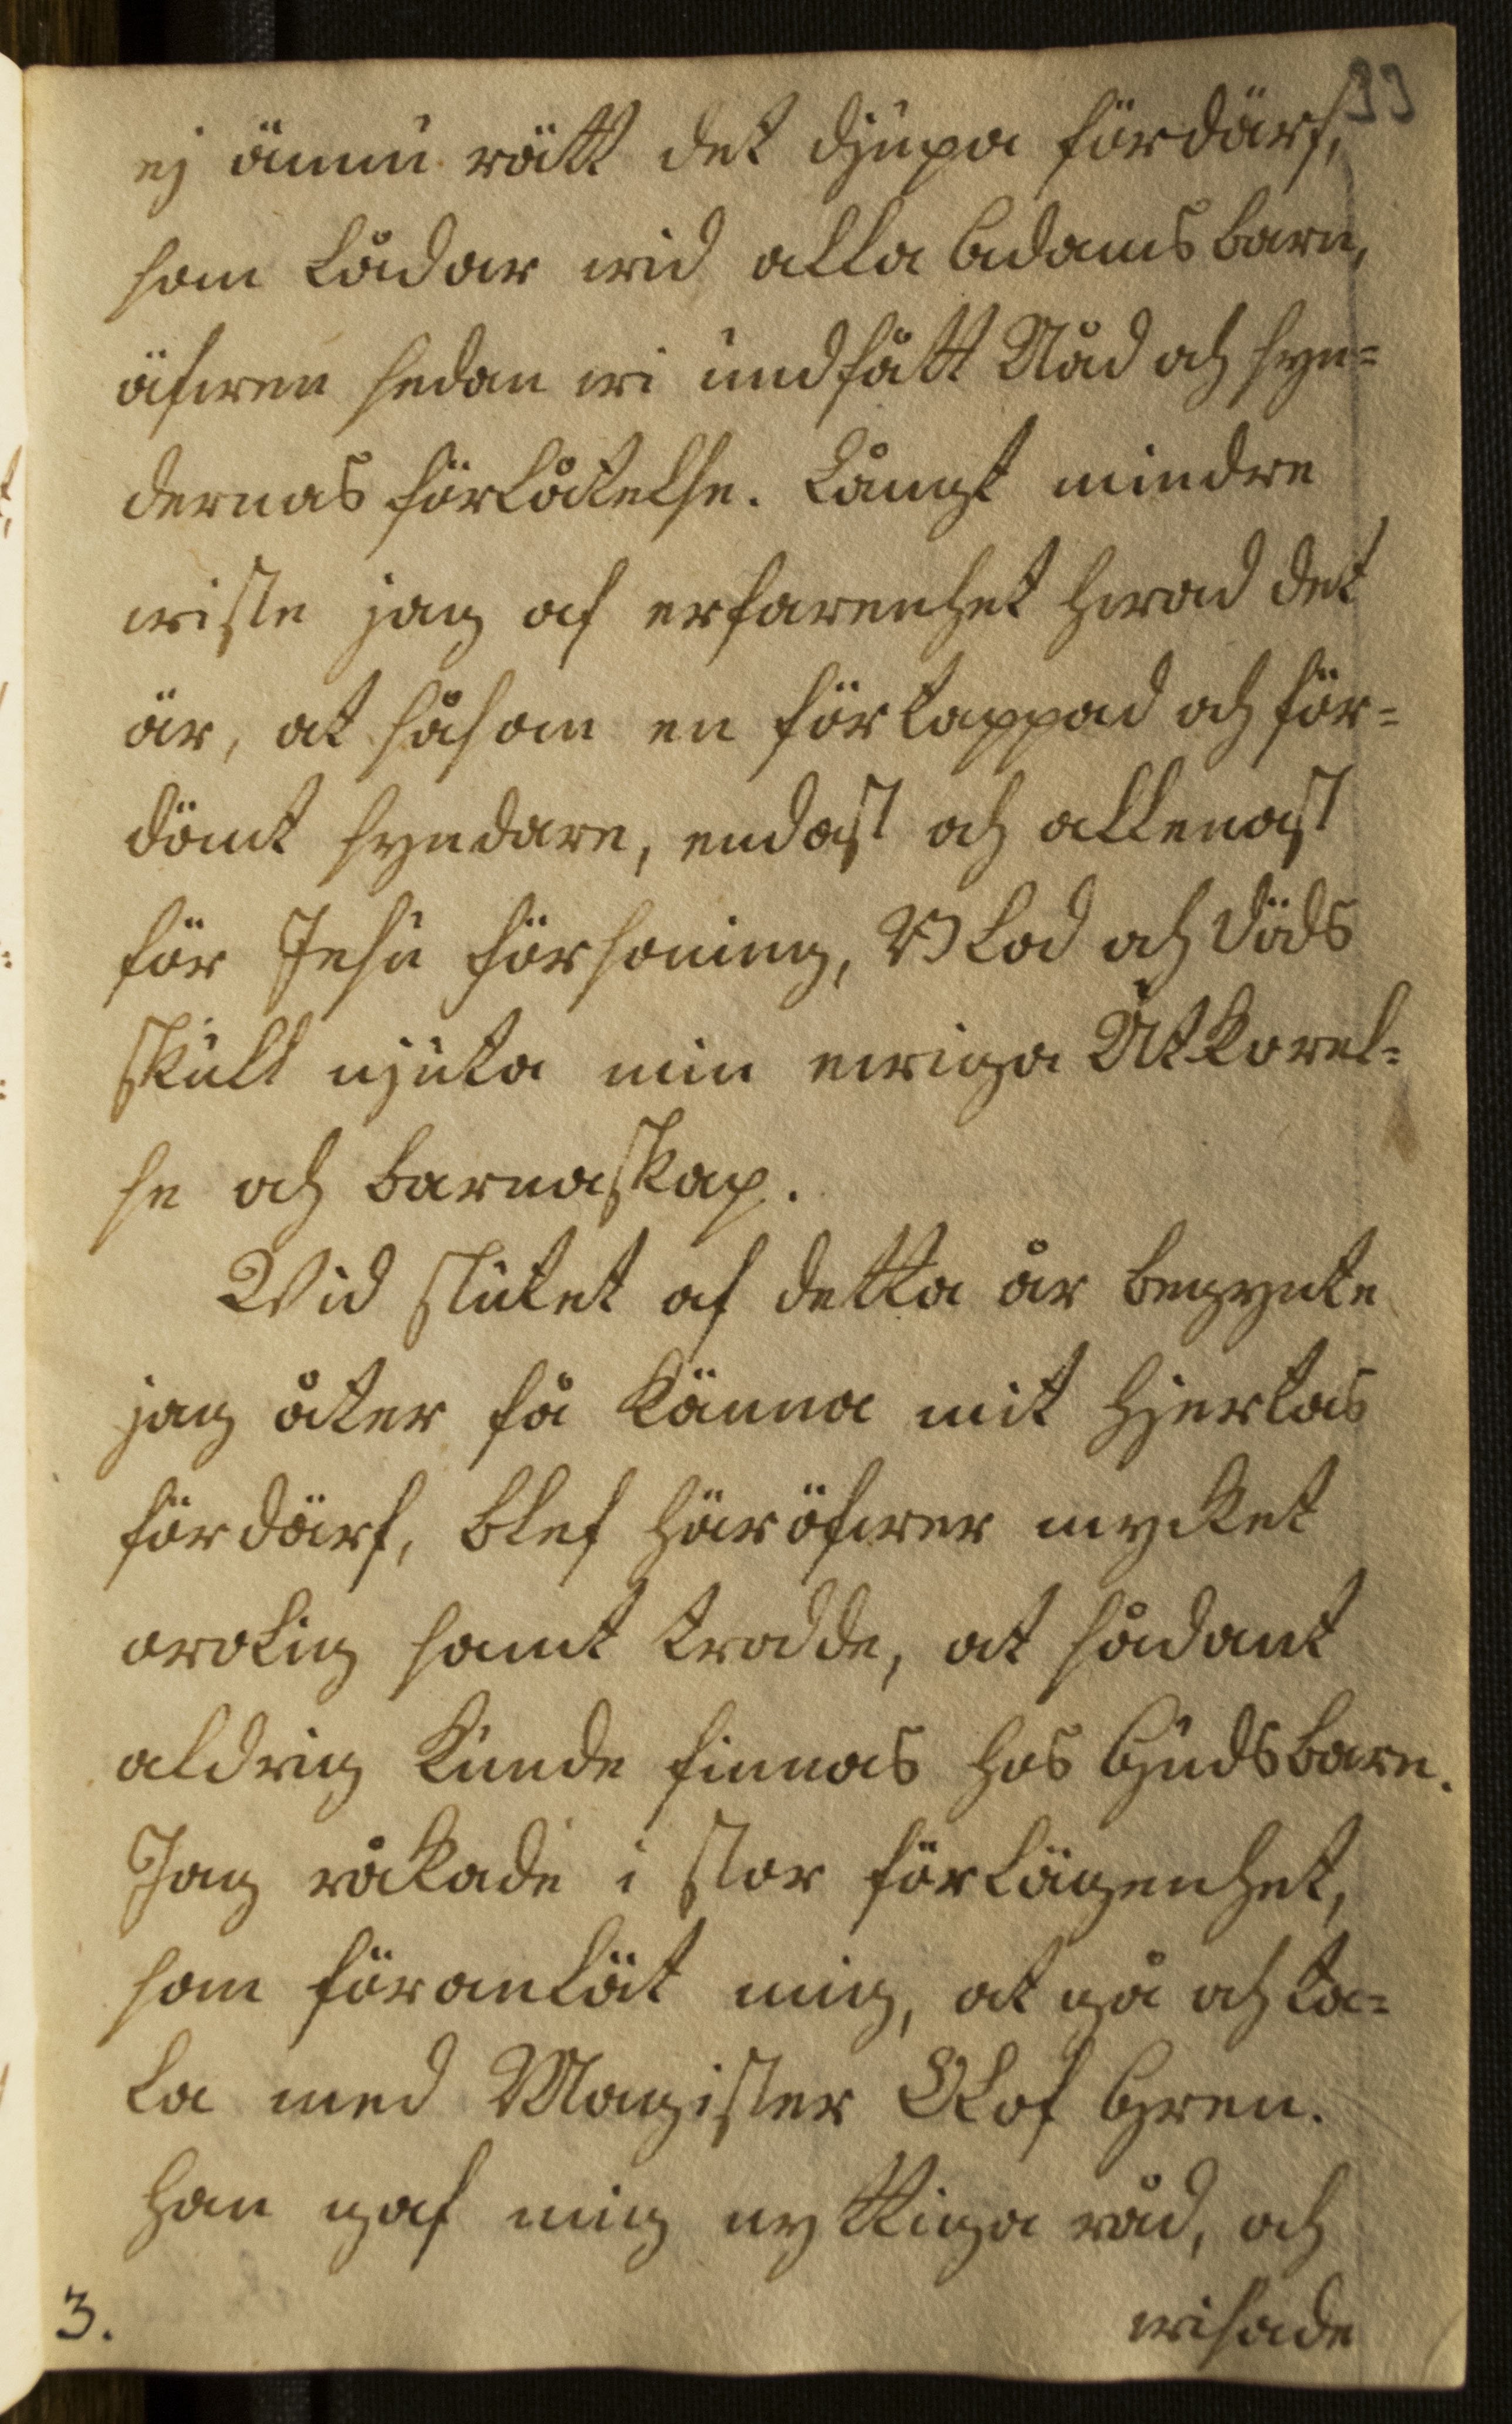 33
ej ännu rätt det djupa fördärf,
som lådar wid alla Adams barn,
äfwen sedan wi undfått Nåd och syn=
dernas förlåtelse. Långt mindre
wiste jag af erfarenhet hwad det
är, at såsom en förtappad och för=
dömt syndare, endast och allenast
för Jesu försoning, Blod och döds
skull njuta min ewiga Utkorel=
se och barnaskap.
Wid slutet af detta år begynte
jag åter få känna mit hjertas
fördärf, blef häröfwer mycket
orolig samt trodde, at sådant
aldrig kunde finnas hos Guds barn.
Jag råkade i stor förlägenhet,
som föranlät mig, at gå och ta=
la med Magister Olof Gren.
Han gaf mig nyttiga råd, och
3. wisade